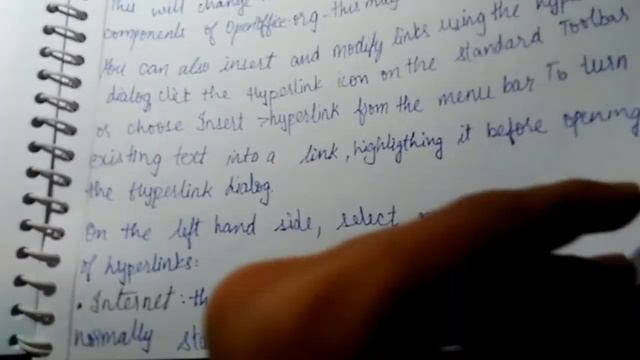 This will change
components of OpenOffice.org - this may
You can also insert and modify links using the
dialog clict the Hyperlink icon on the standard Toolbar
or choose Insert > hyperlink from the menu bar To turn
existing text into a link, highligthing it before opening
the Hyperlink dialog.
On the left hand side, select
of hyperlinks:
• Internet: th
normally